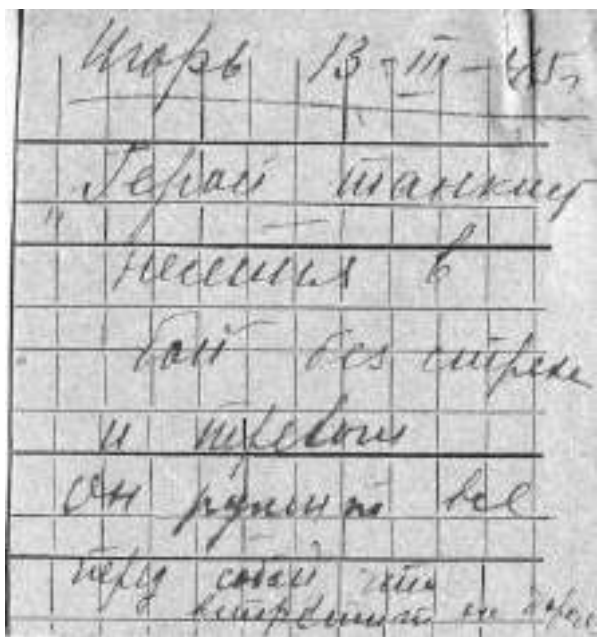 Игорь 13-III-45г
Герой танкист
несется в
бой без страха
и тревоги
Он рушит все
перед собой что
встретит на дороге